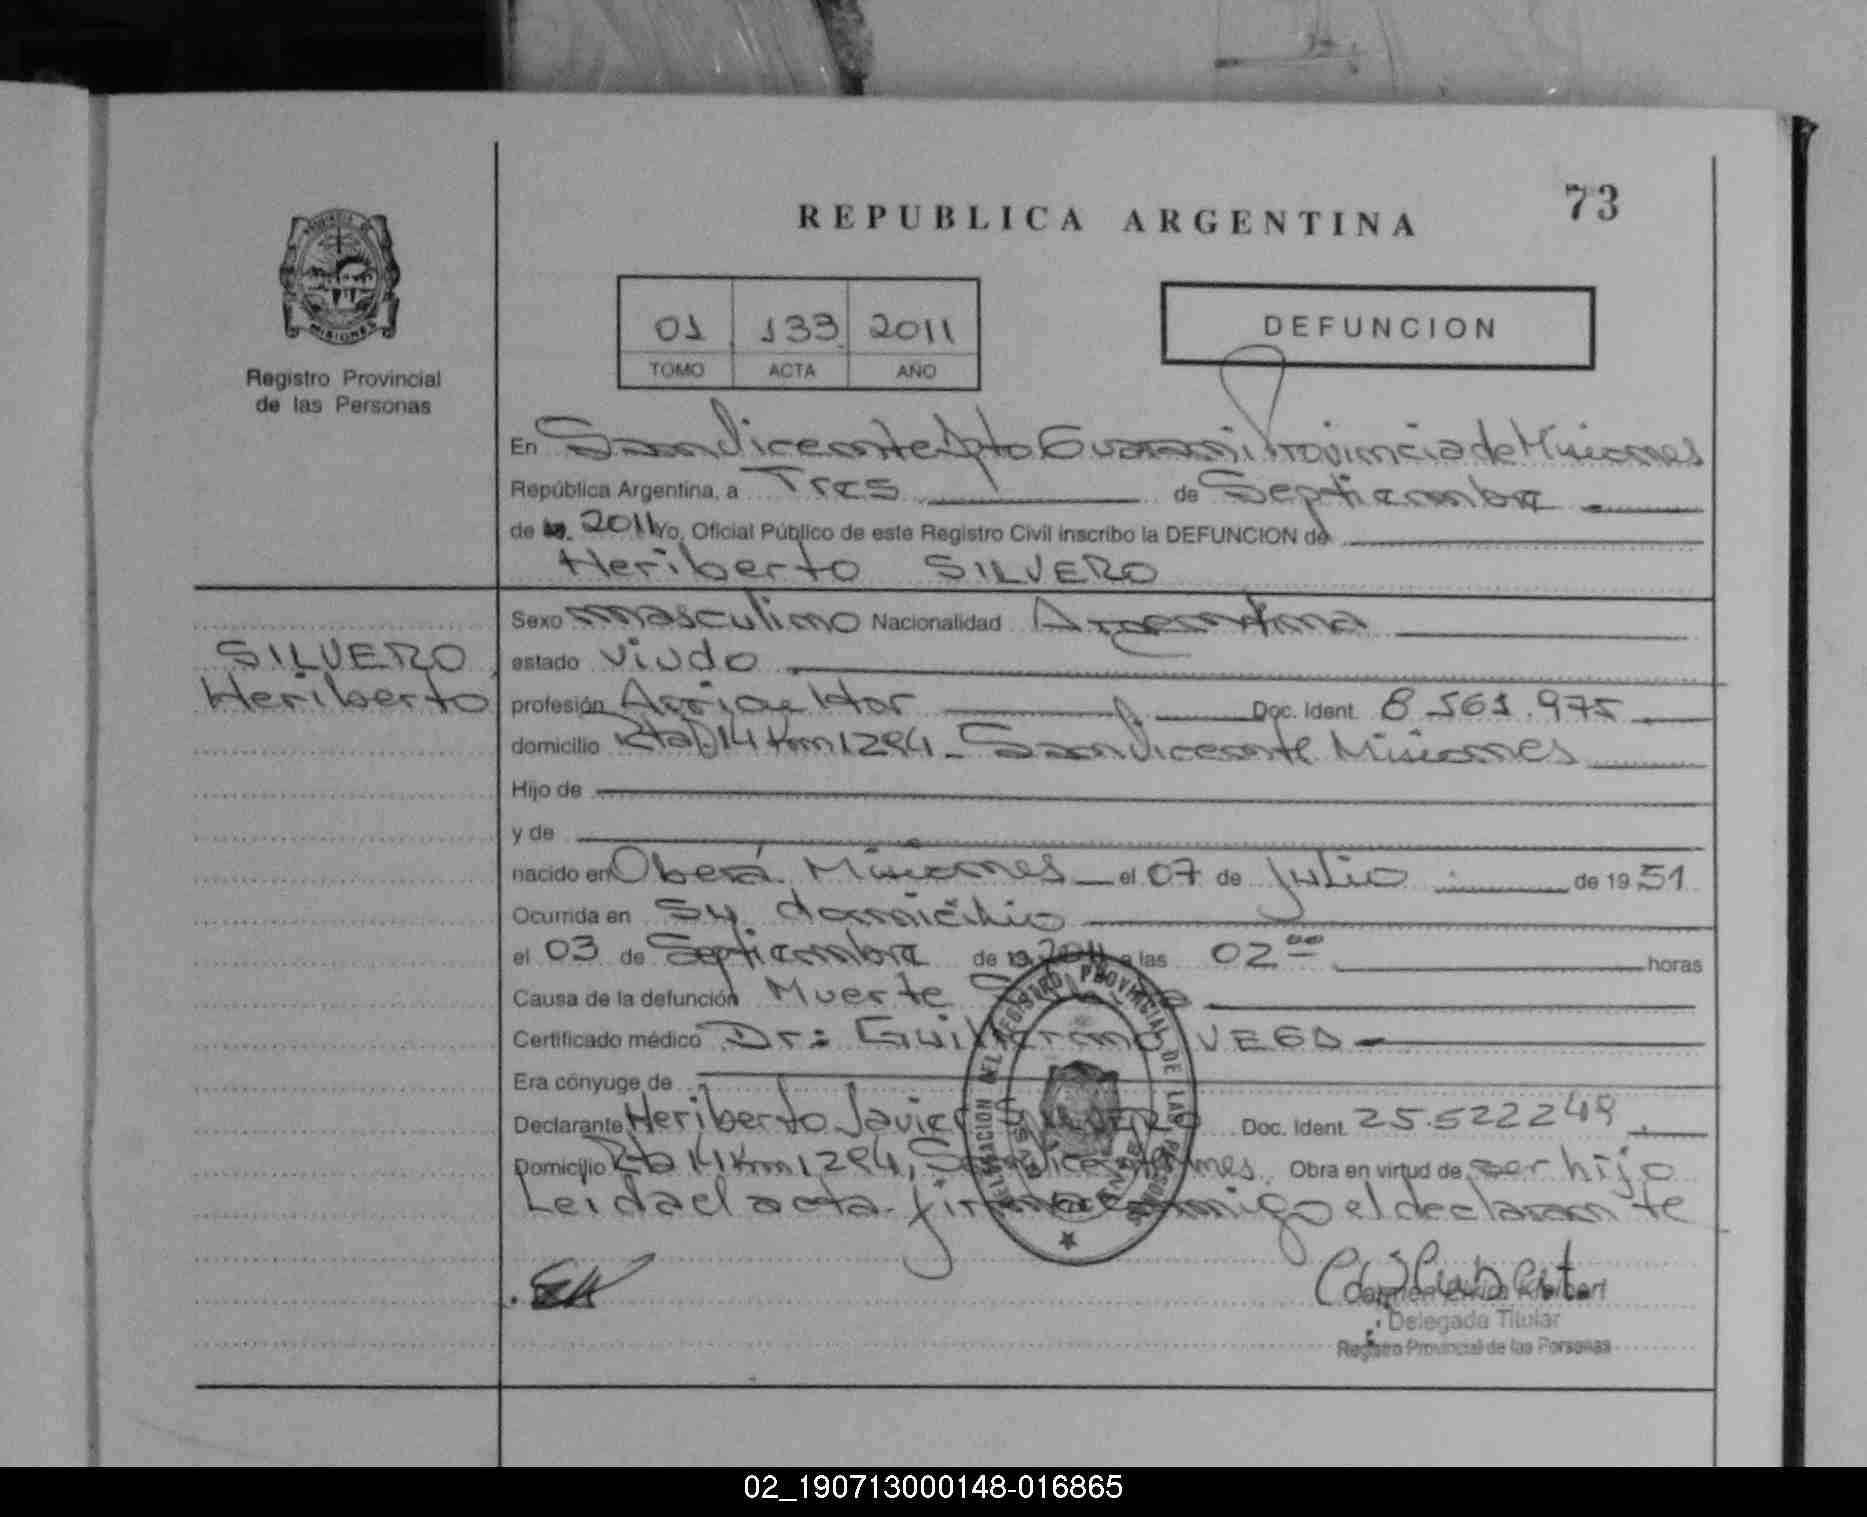 73
REPUBLICA ARGENTINA
PROVINCIA DE
MISIONES
Registro Provincial
de las Personas
01 133 2011
TOMO ACTA AÑO
DEFUNCION
En San Vicente Dpto Guarani Provincia de Misiones
República Argentina, a Tres de Septiembre
de 19 2011 Yo, Oficial Público de este Registro Civil inscribo la DEFUNCION de
Heriberto SILVERO
SILVERO
Heriberto
Sexo masculino Nacionalidad Argentina
estado viudo
profesión Agricultor Doc. Ident. 8.561.975
domicilio Rta 14 Km 1294 - San Vicente Misiones
Hijo de
y de
nacido en Oberá Misiones el 07 de Julio de 19 51
Ocurrida en su domicilio
el 03 de Septiembre de 19 2011 a las 02 00 horas
Causa de la defunción Muerte
Certificado médico Dr: Guillermo VEGA
Era cónyuge de
Declarante Heriberto Javier SILVERO Doc. Ident. 25.522249
Domicilio Rta 14 Km 1294, San Vicente Mnes. Obra en virtud de ser hijo
Leida el acta firma conmigo el declarante
DELEGACION DEL REGISTRO PROVINCIAL DE LAS PERSONAS
Delegada Titular
Registro Provincial de las Personas
02_190713000148-016865